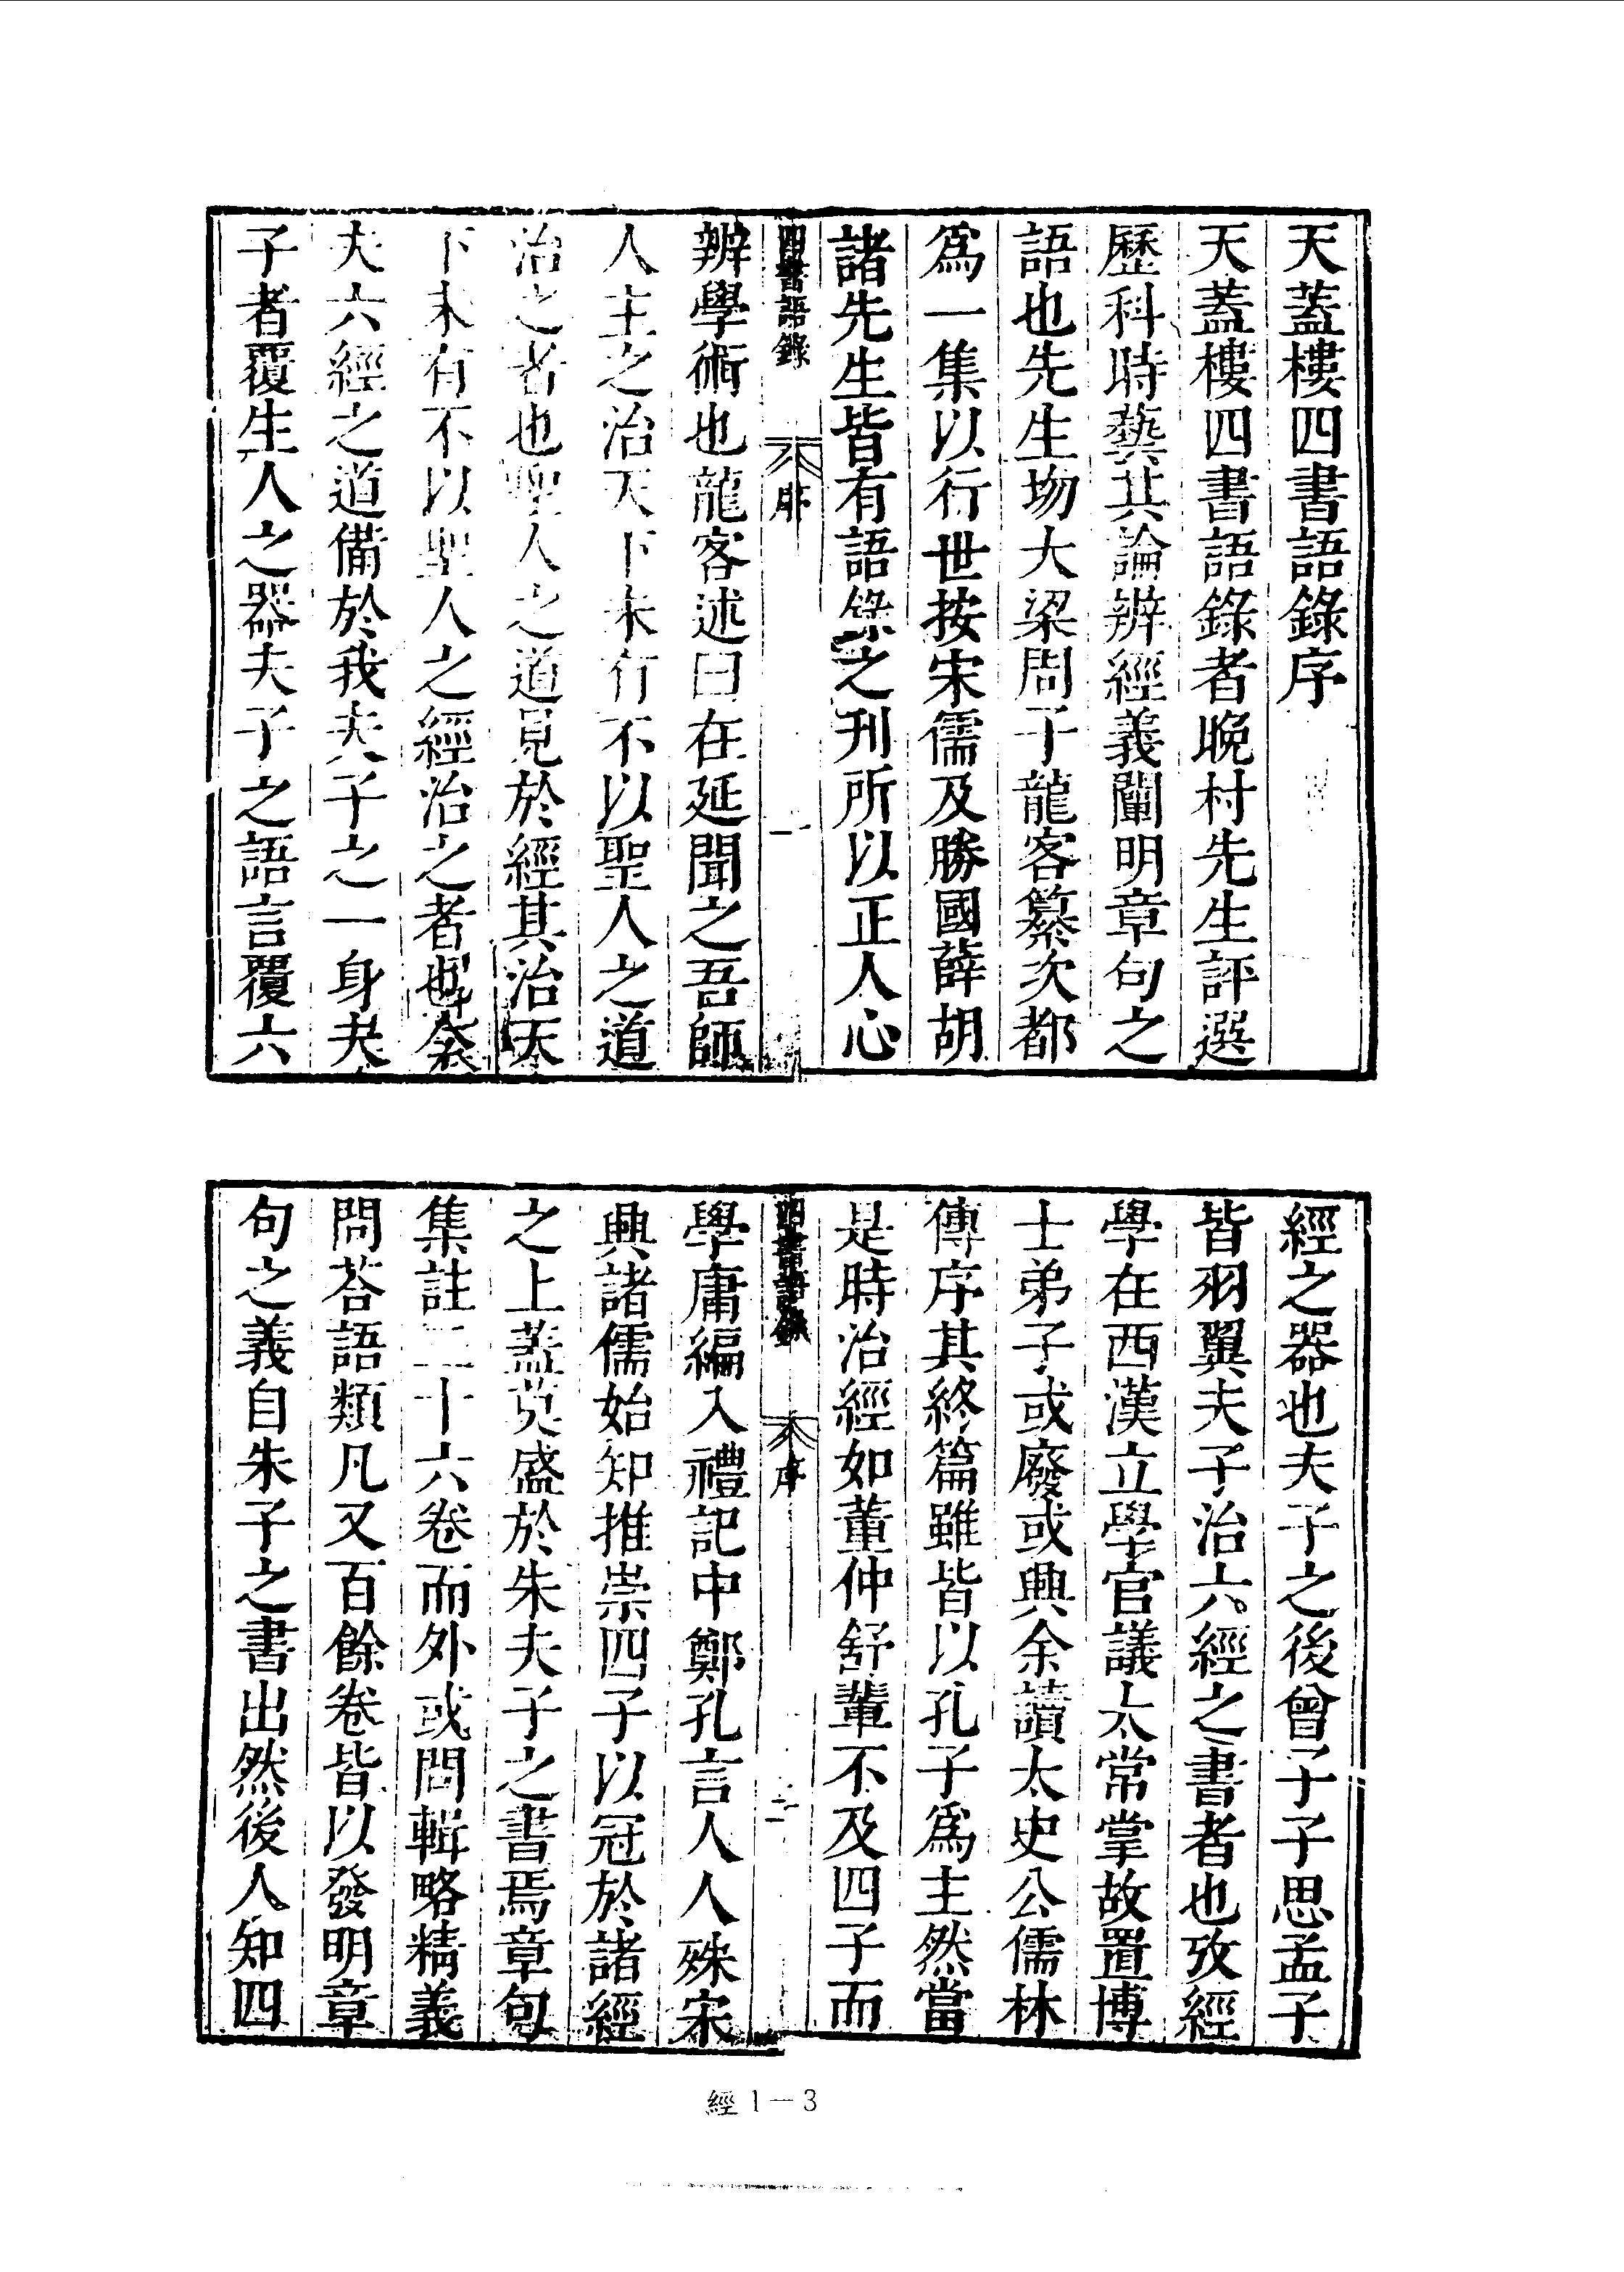 天蓋樓四書語錄序
天蓋樓四書語錄者晚村先生評選
歷科時藝其論辨經義闡明章句之
語也先生歾大梁周子龍客纂次都
爲一集以行世按宋儒及勝國薛胡
諸先生皆有語錄之刊所以正人心
四書語錄 序 一
辨學術也龍客述曰在延聞之吾師
人主之治天下未有不以聖人之道
治之者也聖人之道見於經其治天
下未有不以聖人之經治之者也
夫六經之道備於我夫子之一身夫
子者覆生人之器夫子之語言覆六
經之器也夫子之後曾子子思孟子
皆羽翼夫子治六經之書者也攷經
學在西漢立學官議太常掌故置博
士弟子或廢或興余讀太史公儒林
傳序其終篇雖皆以孔子爲主然當
是時治經如董仲舒輩不及四子而
四書語錄 序 二
學庸編入禮記中鄭孔言人人殊宋
興諸儒始知推崇四子以冠於諸經
之上蓋莫盛於朱夫子之書焉章句
集註二十六卷而外或問輯略精義
問荅語類凡又百餘卷皆以發明章
句之義自朱子之書出然後人知四
經1－3